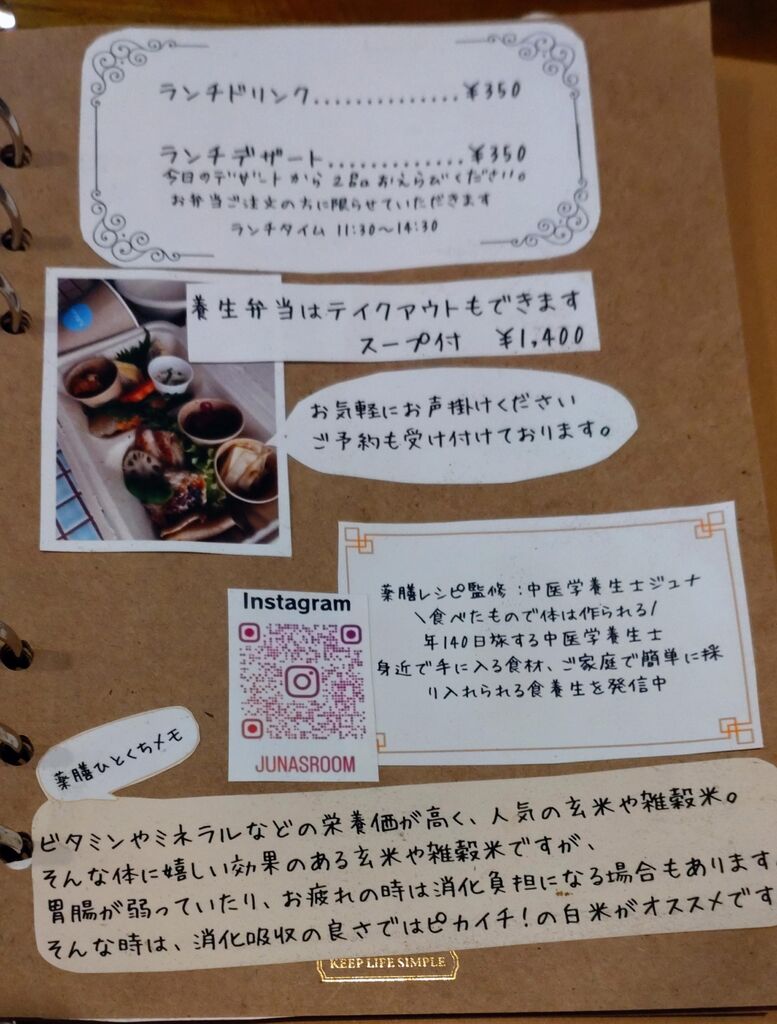 ランチドリンク..............¥350
ランチデザート.............¥350
今日のデザートから2品おえらびください。
お弁当ご注文の方に限らせていただきます
ランチタイム 11:30〜14:30
養生弁当はテイクアウトもできます
スープ付 ¥1,400
お気軽にお声掛けください
ご予約も受け付けております。
薬膳レシピ監修:中医学養生士ジュナ
\食べたもので体は作られる/
年140日旅する中医学養生士
身近で手に入る食材、ご家庭で簡単に採
り入れられる食養生を発信中
Instagram
JUNASROOM
薬膳ひとくちメモ
ビタミンやミネラルなどの栄養価が高く、人気の玄米や雑穀米。
そんな体に嬉しい効果のある玄米や雑穀米ですが、
胃腸が弱っていたり、お疲れの時は消化負担になる場合もあります
そんな時は、消化吸収の良さではピカイチ!の白米がオススメです
KEEP LIFE SIMPLE